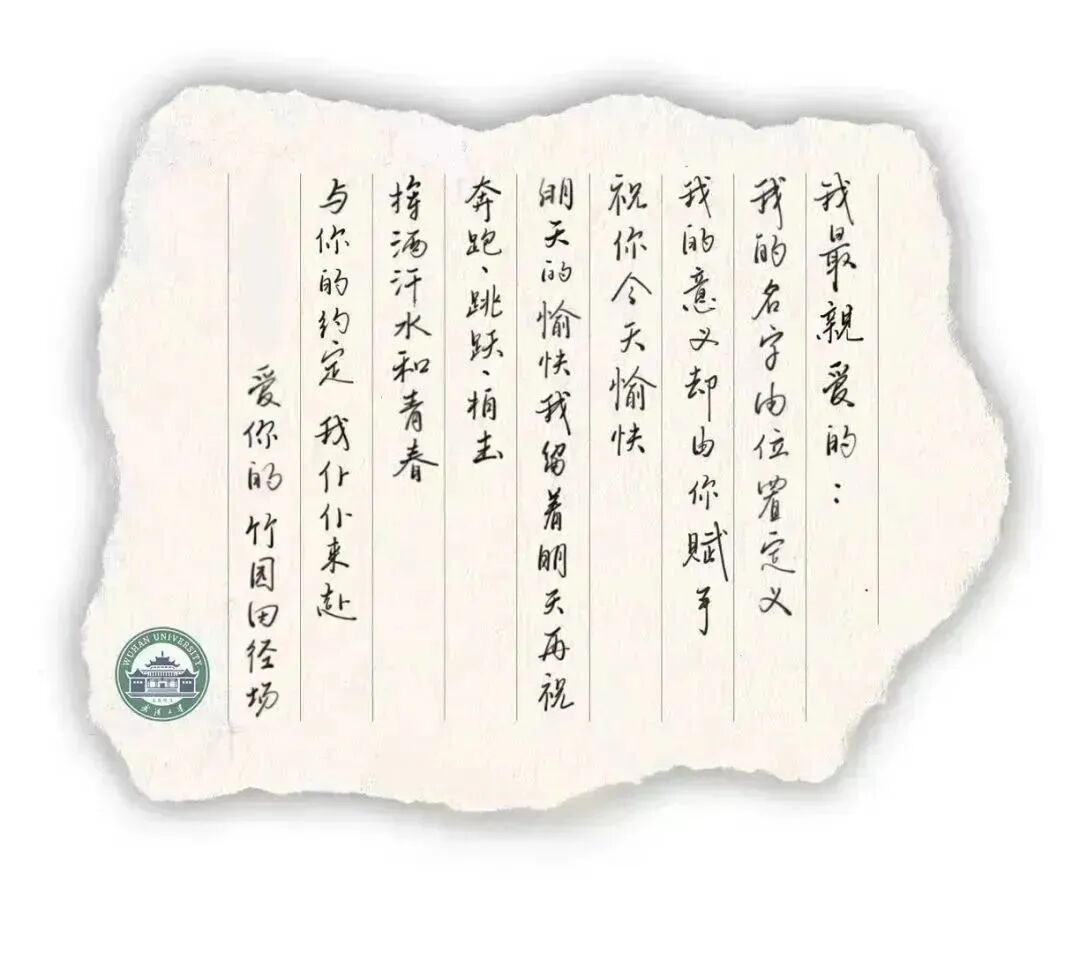 我最親爱的：
我的名字由位置定义
我的意义却由你赋予
祝你今天愉快
明天的愉快我留着明天再祝
奔跑、跳跃、拍击
挥洒汗水和青春
与你的约定 我仆仆来赴
爱你的竹园田径场
WUHAN UNIVERSITY
武汉大学